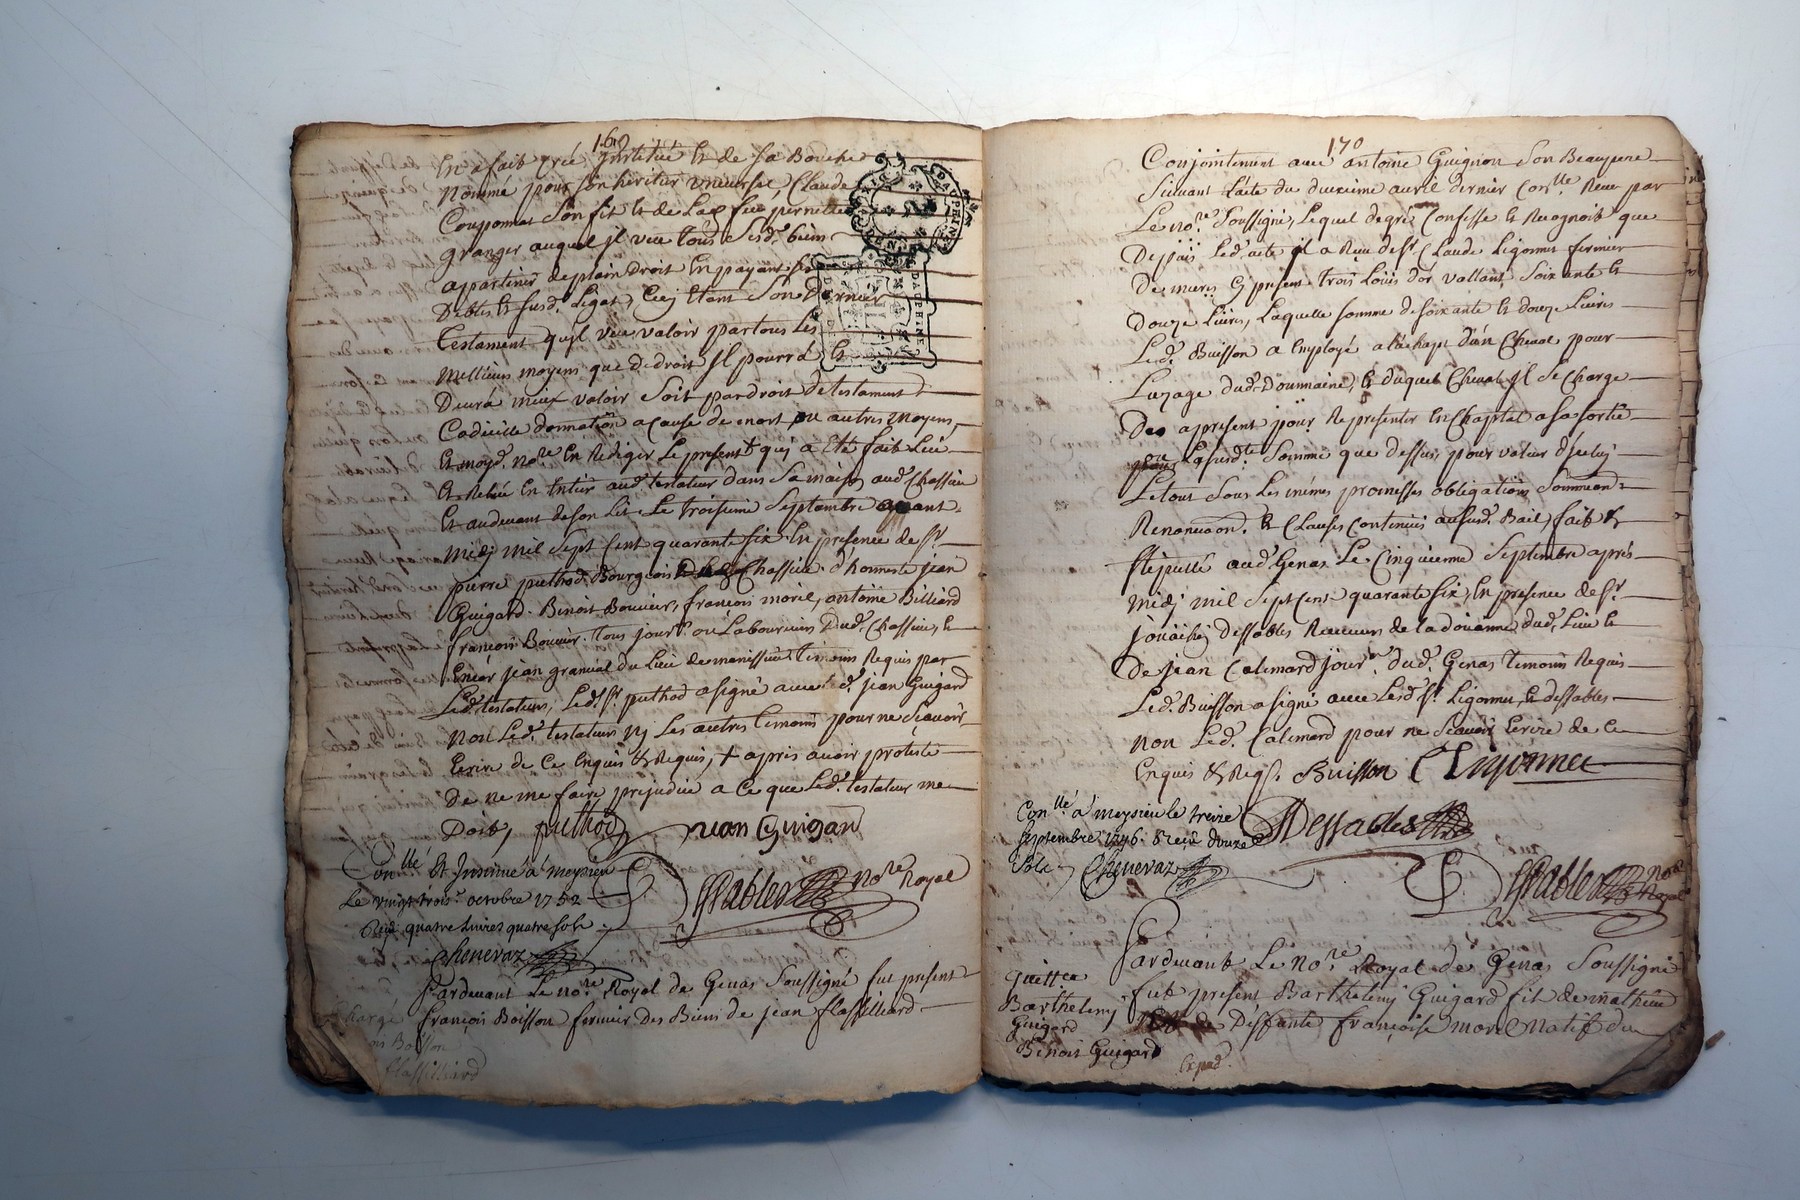 169
En a fait créé institué et de sa Bouche
Nommé pour son héritier universel, Claude
Couponnat son fils et de Lad. feüe pernette
granger auquel il veut tous sesd. biens
appartenir de plain droit En payant ses
Debtes et susd. Legats, Cecy Etant Son Dernier
Testament qu'il veut valoir par tous Les
Meillieurs moyens que de droit Jl pourrá et
Devra mieux valoir Soit par droit de testament
Codicille donnation a cause de mort ou autres moyens,
Et moyd. nore En Rédiger Le present qui a Eté fait Leu
Et Releu En Entier aud. testateur dans Sa maison aud. Chassieu
Et audevant de son Lit Le troisieme Septembre avant
Midj mil Sept Cent quarante six En présence de Sr
pierre puthod Bourgeois Chassieu d'honneste jean
Guigard. Benoit Bouvier, françois morel, antoine Billiard
françois Bouvier tous jourrs ou Laboureurs Dud. Chassieu, et
Encor jean granial du Lieu de manissieu temoins Requis par
Led. testateur, Led. Sr puthod a signé avec led. jean Guigard
Non Led. testateur Nj Les autres temoins pour ne Scavoir
Ecrire de Ce Enquis et Requis, + apres avoir protesté
De ne me faire préjudice a Ce que Led. testateur me
Doit, puthod jean Guigard
Conllé Et Jnsinué á meyzieu
Le vingt trois octobre 1752
Reçu quatre Livres quatre sols
Chenevaz
Chables nore Royal
Pardevant Le nore Royal de Genas Soussigné fut present
Chargé françois Boisson fermier des Biens de jean flassilliard
ois Boisson
flassilliard
170
Conjointement avec antoine Guignon Son Beaupere
Suivant L'acte du deuxieme avril dernier Conllé Receu par
Le nore Soussigné, Lequel de gré Confesse et Recognoit que
Depuis Led. acte il a Reçu de Sr Claude Ligonnet fermier
De mieres Cy present trois Loüis d'or vallant, Soixante et
Douze Livres, Laquelle Somme de soixante et douze Livres
Led. Buisson a Employé a l'achapt d'un Cheval pour
Luzage dud. Doumaine, et duquel Cheval Jl se Charge
Des a present pour Representer En Chaptal a sa sortie
ou Lasusd.te Somme que dessus pour valeur d'jceluy
Letout Sous Les mémes promesses obligations Soumission
Renonciaon. et Clauses Contenües aususd. Bail, fait et
Stipullé aud. Genas Le Cinquieme Septembre aprés
Midj mil Sept Cent quarante six, En presence de Sr
joüachin dessables Receveur de la doüanne dud. Lieu et
De jean Calimard jourr dud. Genas temoins Requis
Led. Buisson a signé avec Lesd. Srs Ligonnet, et dessables
Non Led. Calimard pour ne Scavoir Ecrire de Ce
Enquis et Reqs. Buisson
Conllé á meyzieu le treize
septembre 1746. Reçu douze
sols Chenevaz
Dessables
Chables nore Royal
Pardevant Le nore Royal de Genas Soussigné
Quittce
Barthelemy
Guigard
Benoit Guigard
fut present Barthelemy Guigard fils de mathieu
Et de Deffante françoise morel Natif du
Exped.